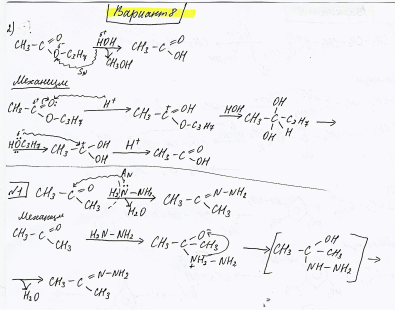 Вариант 8
2)
CH₃-C O O-C₃H₇ HOH CH₃OH CH₃-C O OH
S_N
Механизм
CH₃-C O O-C₃H₇ H⁺ CH₃-C OH O-C₃H₇ HOH CH₃-C OH O-C₃H₇ OH H
HOC₃H₇ CH₃-C OH OH H⁺ CH₃-C O OH
A_N
№1 CH₃-C O CH₃ H₂N-NH₂ H₂O CH₃-C N-NH₂ CH₃
Механизм
CH₃-C O CH₃ H₂N-NH₂ CH₃-C O⁻ CH₃ NH₂-NH₂ + [CH₃-C OH CH₃ NH-NH₂]
H₂O CH₃-C N-NH₂ CH₃